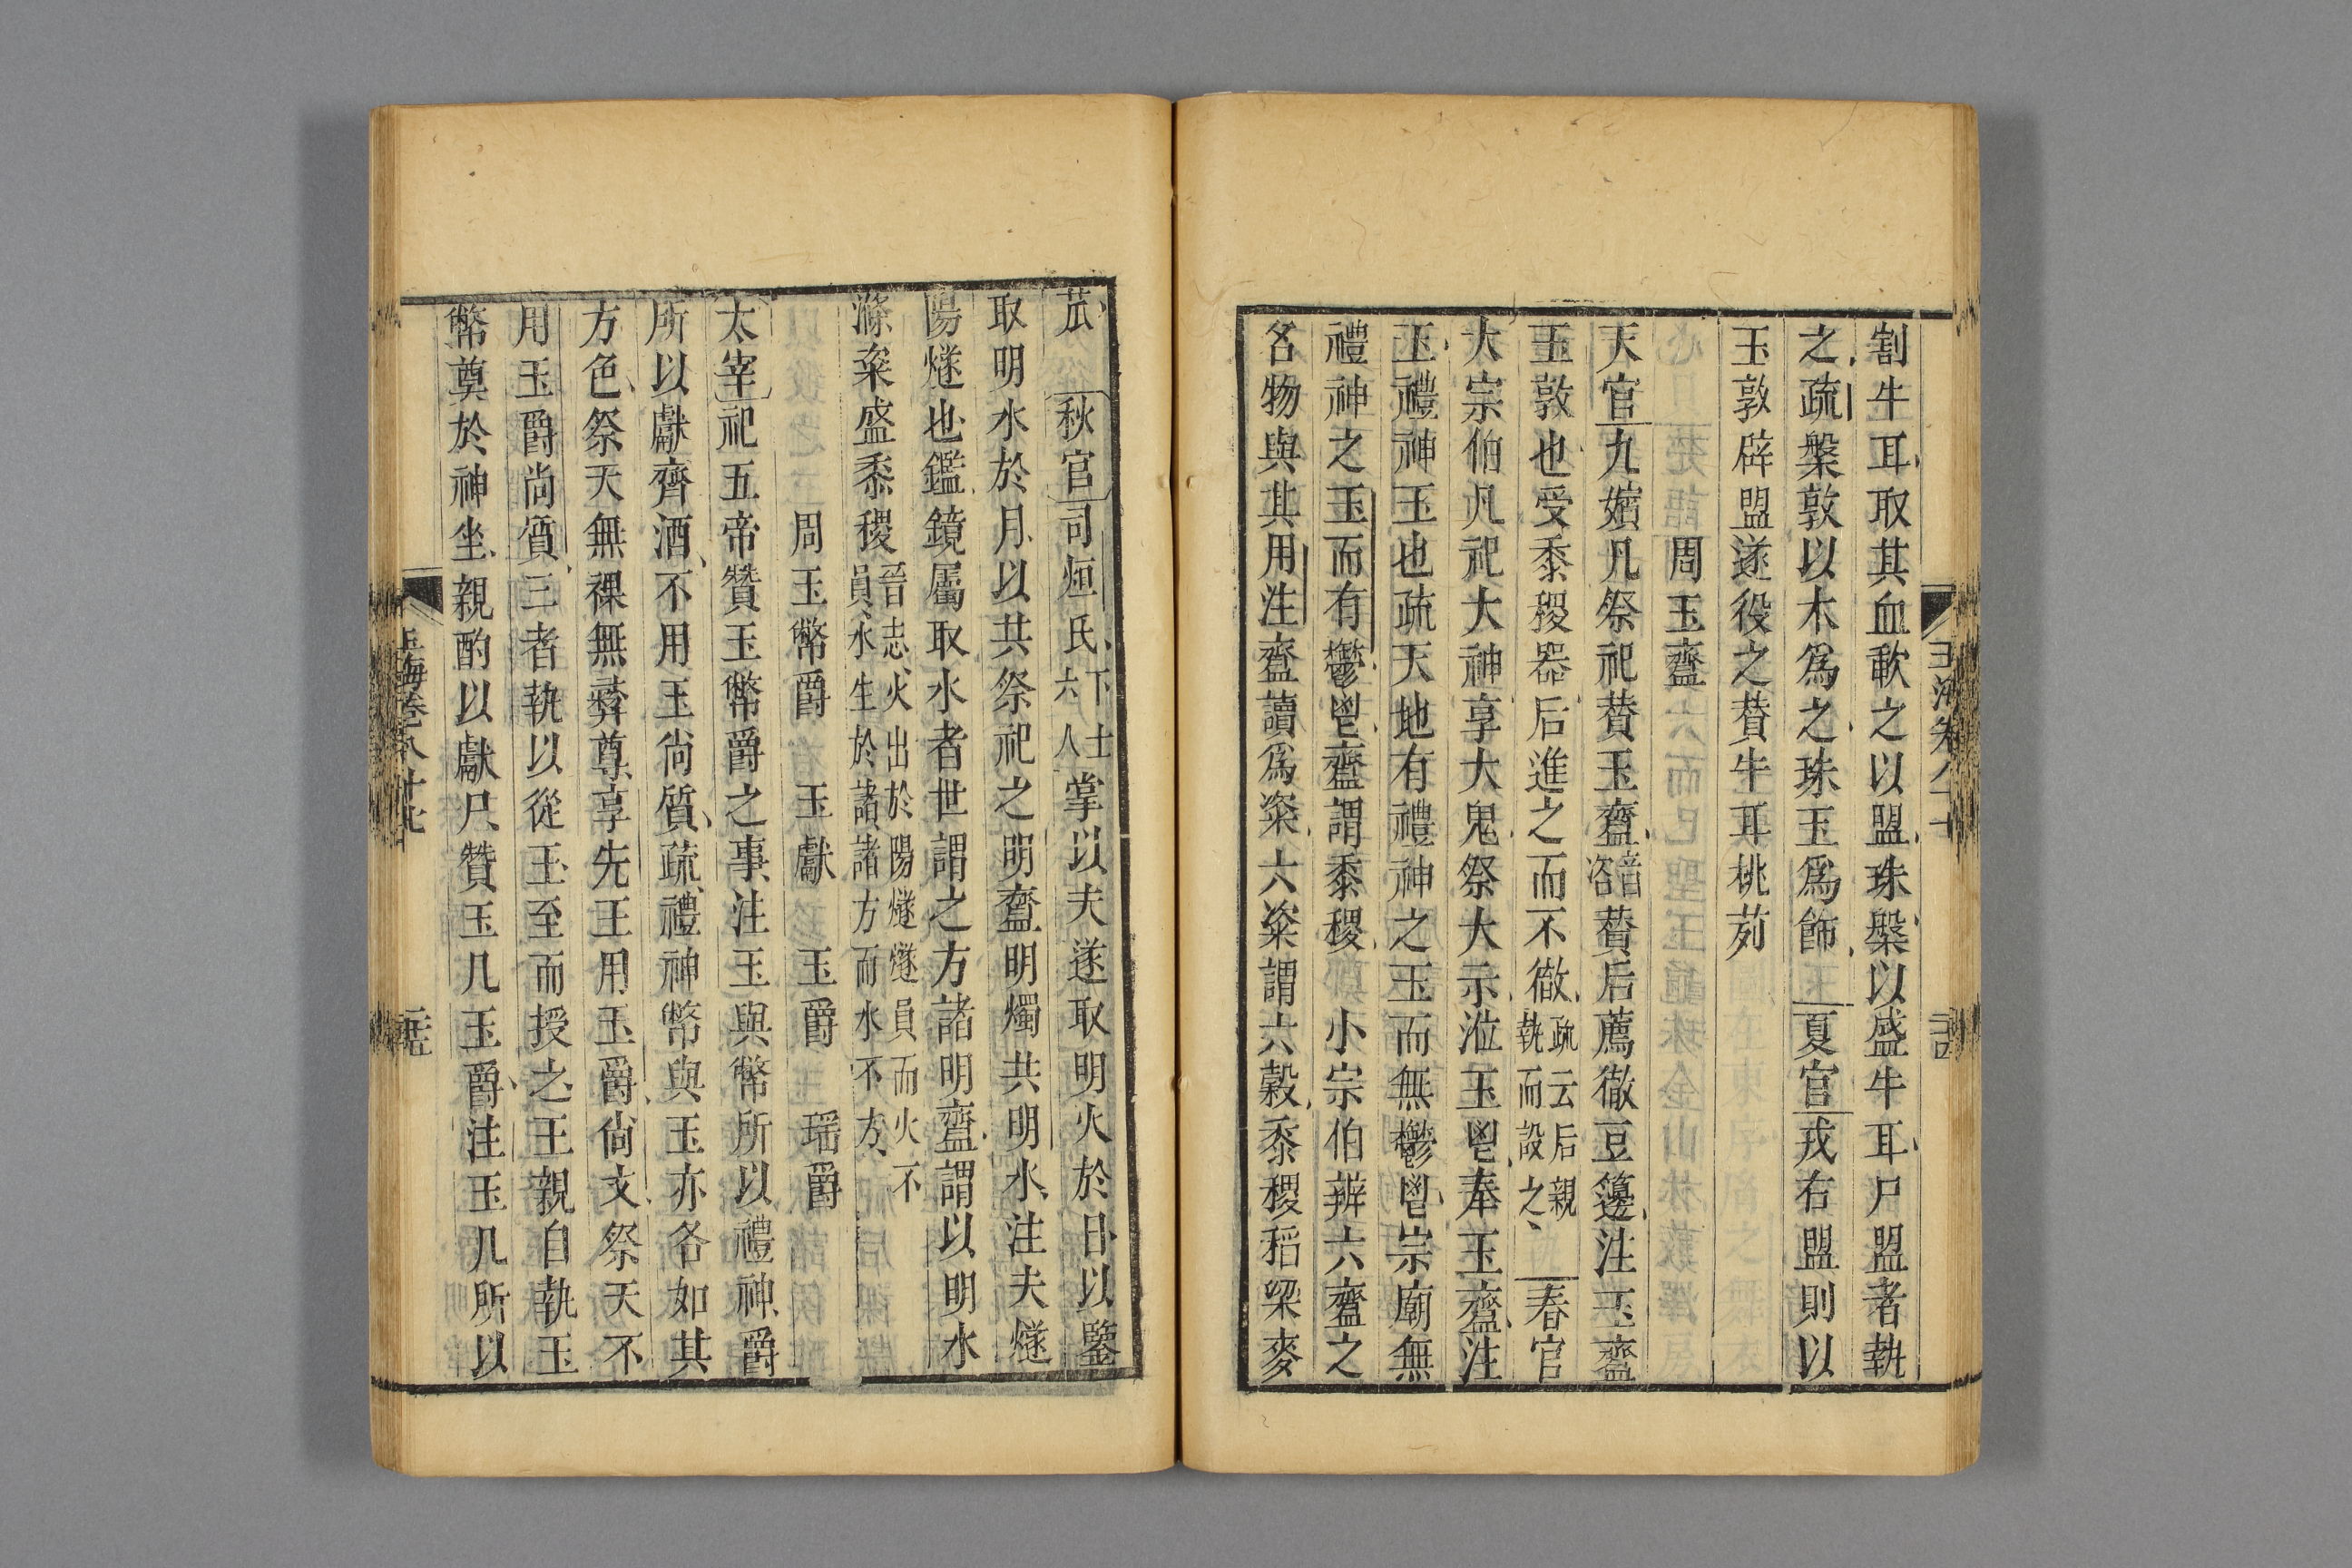 割牛耳取其血歃之以盟珠槃以盛牛耳尸盟者執
之疏槃敦以木爲之珠玉爲飾夏官戎右盟則以
玉敦辟盟遂役之贊牛耳桃茢
周玉齍
天官九嬪凡祭祀贊玉齍音咨贊后薦徹豆籩注玉齍
玉敦也受黍稷器后進之而不徹疏云后親執而設之春官
大宗伯凡祀大神享大鬼祭大示涖玉鬯奉玉齍注
玉禮神玉也疏天地有禮神之玉而無鬱鬯宗廟無
禮神之玉而有鬱鬯齍謂黍稷小宗伯辨六齍之
名物與其用注齍讀爲粢六粢謂六穀黍稷稻粱麥
苽秋官司烜氏下士六人掌以夫遂取明火於日以鑒
取明水於月以共祭祀之明齍明燭共明水注夫燧
陽燧也鑑鏡屬取水者世謂之方諸明齍謂以明水
滌粢盛黍稷晉志火出於陽燧燧員而火不員水生於諸諸方而水不方
周玉幣爵 玉獻 玉爵 瑶爵
太宰祀五帝贊玉幣爵之事注玉與幣所以禮神爵
所以獻齊酒不用玉尙質疏禮神幣與玉亦各如其
方色祭天無祼無彛尊享先王用玉爵尙文祭天不
用玉爵尚質三者執以從玉至而授之王親自執玉
幣奠於神坐親酌以獻尸贊玉几玉爵注玉几所以
玉海卷八十七